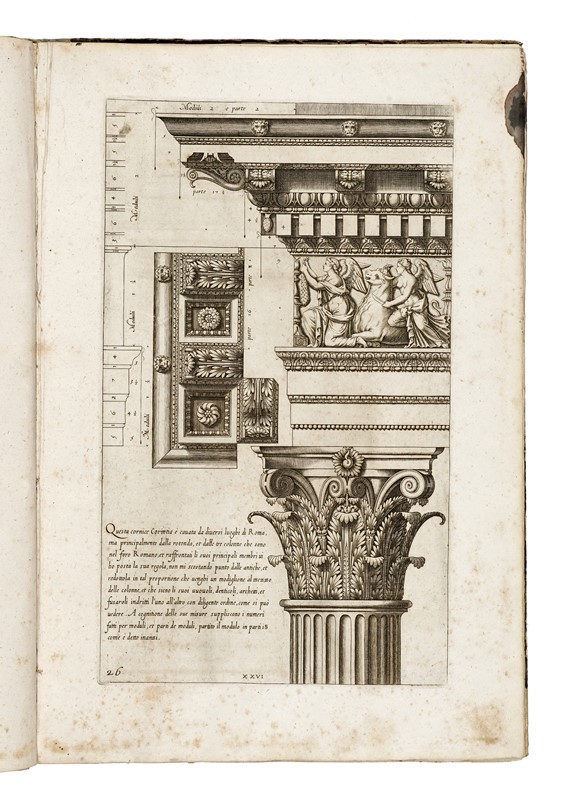 Moduli 2 e parte 2
parte 17 ½
Moduli 2
Moduli
Moduli
parte 8
parte 16
Questa cornice Corintia è cavata da diversi luoghi di Roma,
ma principalmente dalla rotonda, et dalle tre colonne che sono
nel foro Romano, et raffrontati li suoi principali membri vi
ho posta la sua regola, non mi scostando punto dalle antiche, et
reducttola in tal proportione che venghi un modiglione al mezzo
delle colonne, et che sieno li suoi uuovoli, denticoli, archetti, et
fusaroli indritti l'uno all'altro con diligente ordine, come si può
vedere. A cognitione delle sue misure suppliscono i numeri
fatti per moduli, et parti de moduli, partito il modulo in parti 18
come è detto inanti.
26
XXVI